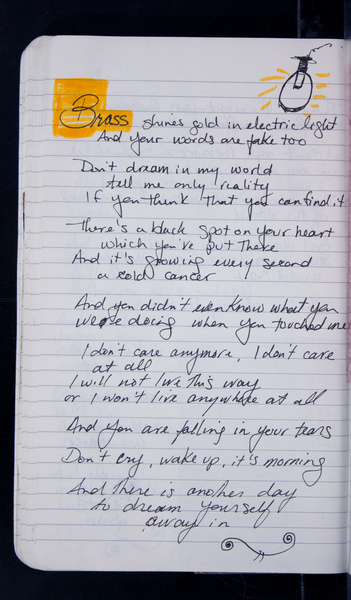 Brass shines gold in electric light
And your words are fake too
Don't dream in my world
tell me only reality
If you think that you can find it
There's a black spot on your heart
which you've put there
And it's growing every second
a cold cancer
And you didn't even know what you
were doing when you touched me
I don't care anymore, I don't care
at all
I will not live this way
or I won't live anywhere at all
And you are falling in your tears
Don't cry, wake up, it's morning
And there is another day
to dream yourself
away in